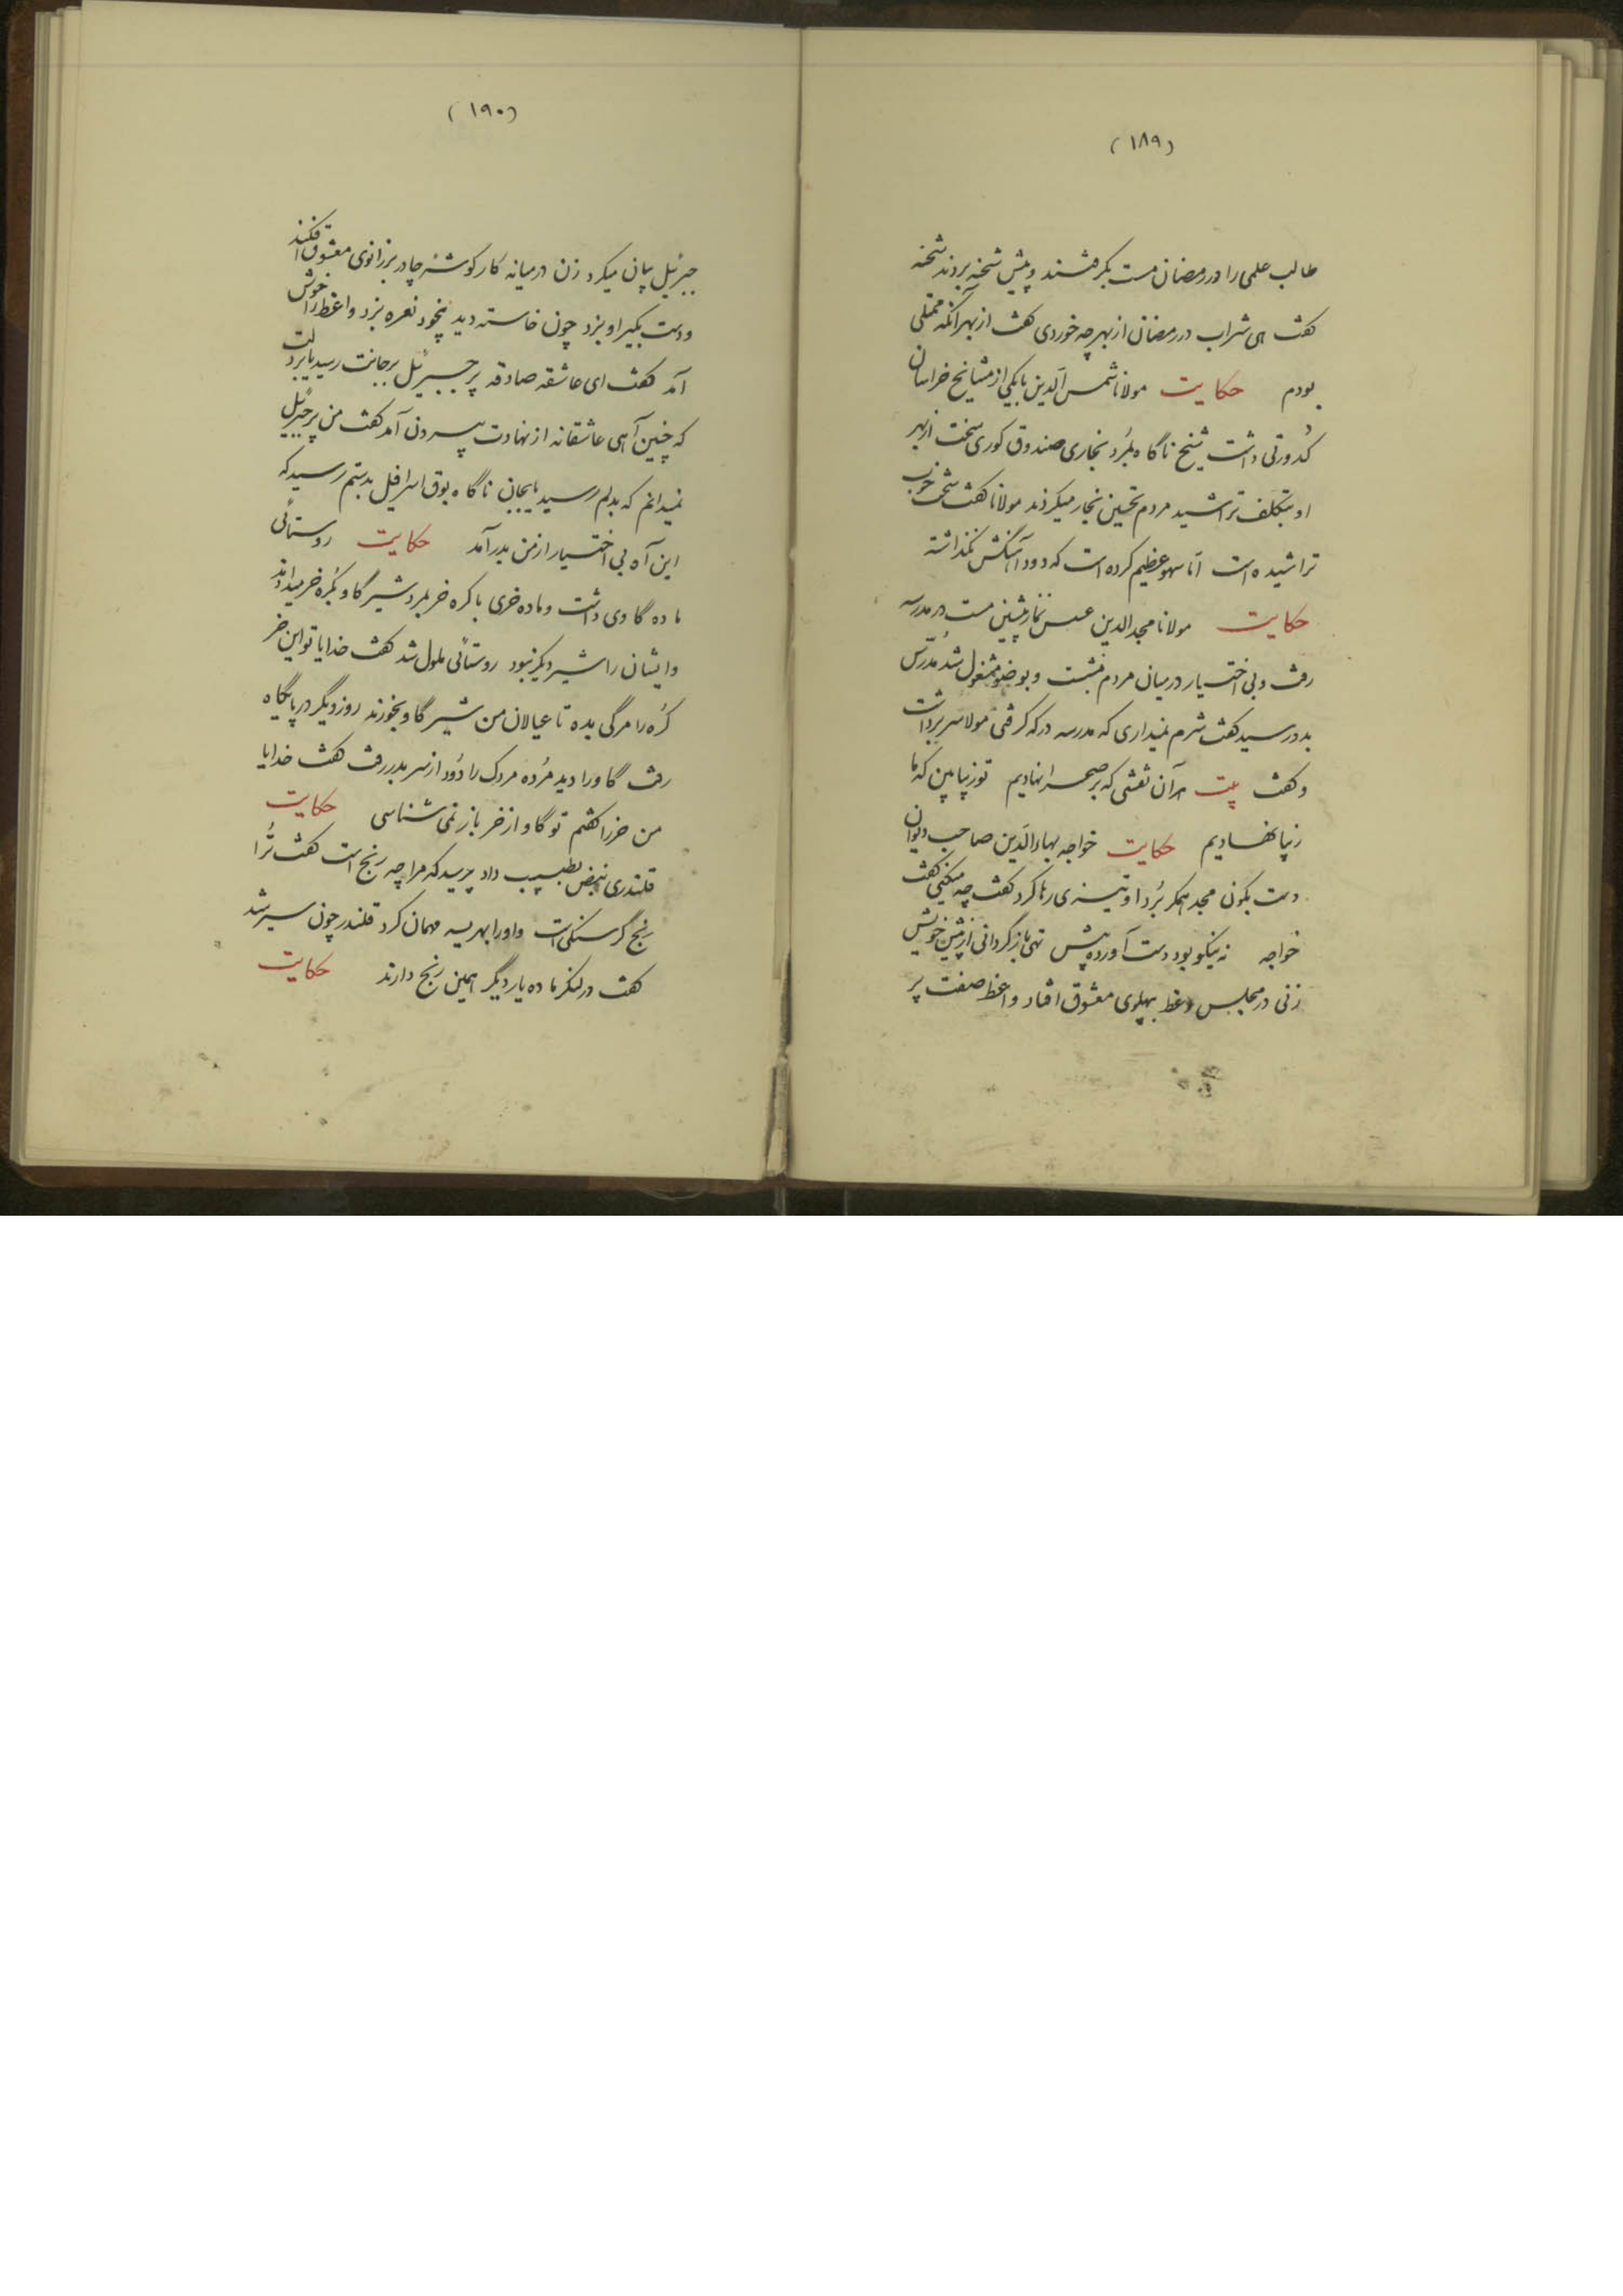 (۱۸۹)
طالب علمی را در رمضان مست بگرفتند و پیش شحنه بردند شحنه
گفت هی شراب در رمضان از بهر چه خوردی گفت از بهر آنکه ممتلی
بودم حکایت مولانا شمس الدین با یکی از مشایخ خراسان
کدورتی داشت شیخ ناگاه بمرد نجاری صندوق کوری سخت از بهر
او بتکلف تراشید مردم تحسین نجار میکردند مولانا گفت سخت خوب
تراشیده است اما سهو عظیم کرده است که دود آهنگش نگذاشته
حکایت مولانا مجدالدین عسس نماز پیشین مست در مدرسه
رفت و بی اختیار در میان مردم نشست و بوضو مشغول شد مدرس
بدو رسید گفت شرم نمیداری که مدرسه در که گرفتی مولا سر برداشت
و گفت بیت هر آن نقشی که بر صحرا نهادیم تو زیبا بین که ما
زیبا نهادیم حکایت خواجه بهاءالدین صاحب دیوان
دست بکون مجد همکر برد او تیزی رها کرد گفت چه میکنی گفت
خواجه نه نیکو بود دست آورده پیش تهی باز گردانی از پیش خویش
زنی در مجلس وعظ بپهلوی معشوق افتاد واعظ صفت پر
(۱۹۰)
جبرئیل بیان میکرد زن در میانه کار گوشه چادر بر زانوی معشوق افکند
و دست بکیر او بزد چون خاسته دید بیخود نعره بزد واعظ را خوش
آمد گفت ای عاشقه صادقه پر جبرئیل بر جانت رسید یا بر دلت
که چنین آهی عاشقانه از نهادت بیرون آمد گفت من پر جبرئیل
نمیدانم که بدلم رسید یا بجان ناگاه بوق اسرافیل بدستم رسید که
این آه بی اختیار از من بدر آمد حکایت روستائی
ماده گاوی داشت و ماده خری با کره خر بمرد شیر گاو بکره خر میدادند
و ایشان را شیر دیگر نبود روستائی ملول شد گفت خدایا تو این خر
کره را مرگی بده تا عیالان من شیر گاو بخورند روز دیگر در پایگاه
رفت گاو را دید مرده مردک را دود از سر بدر رفت گفت خدایا
من خر را گفتم تو گاو از خر باز نمی شناسی حکایت
قلندری نبض بطبیب داد پرسید که مرا چه رنج است گفت ترا
رنج گرسنگی است و او را بهریسه مهمان کرد قلندر چون سیر شد
گفت در لنگر ما ده یار دیگر همین رنج دارند حکایت